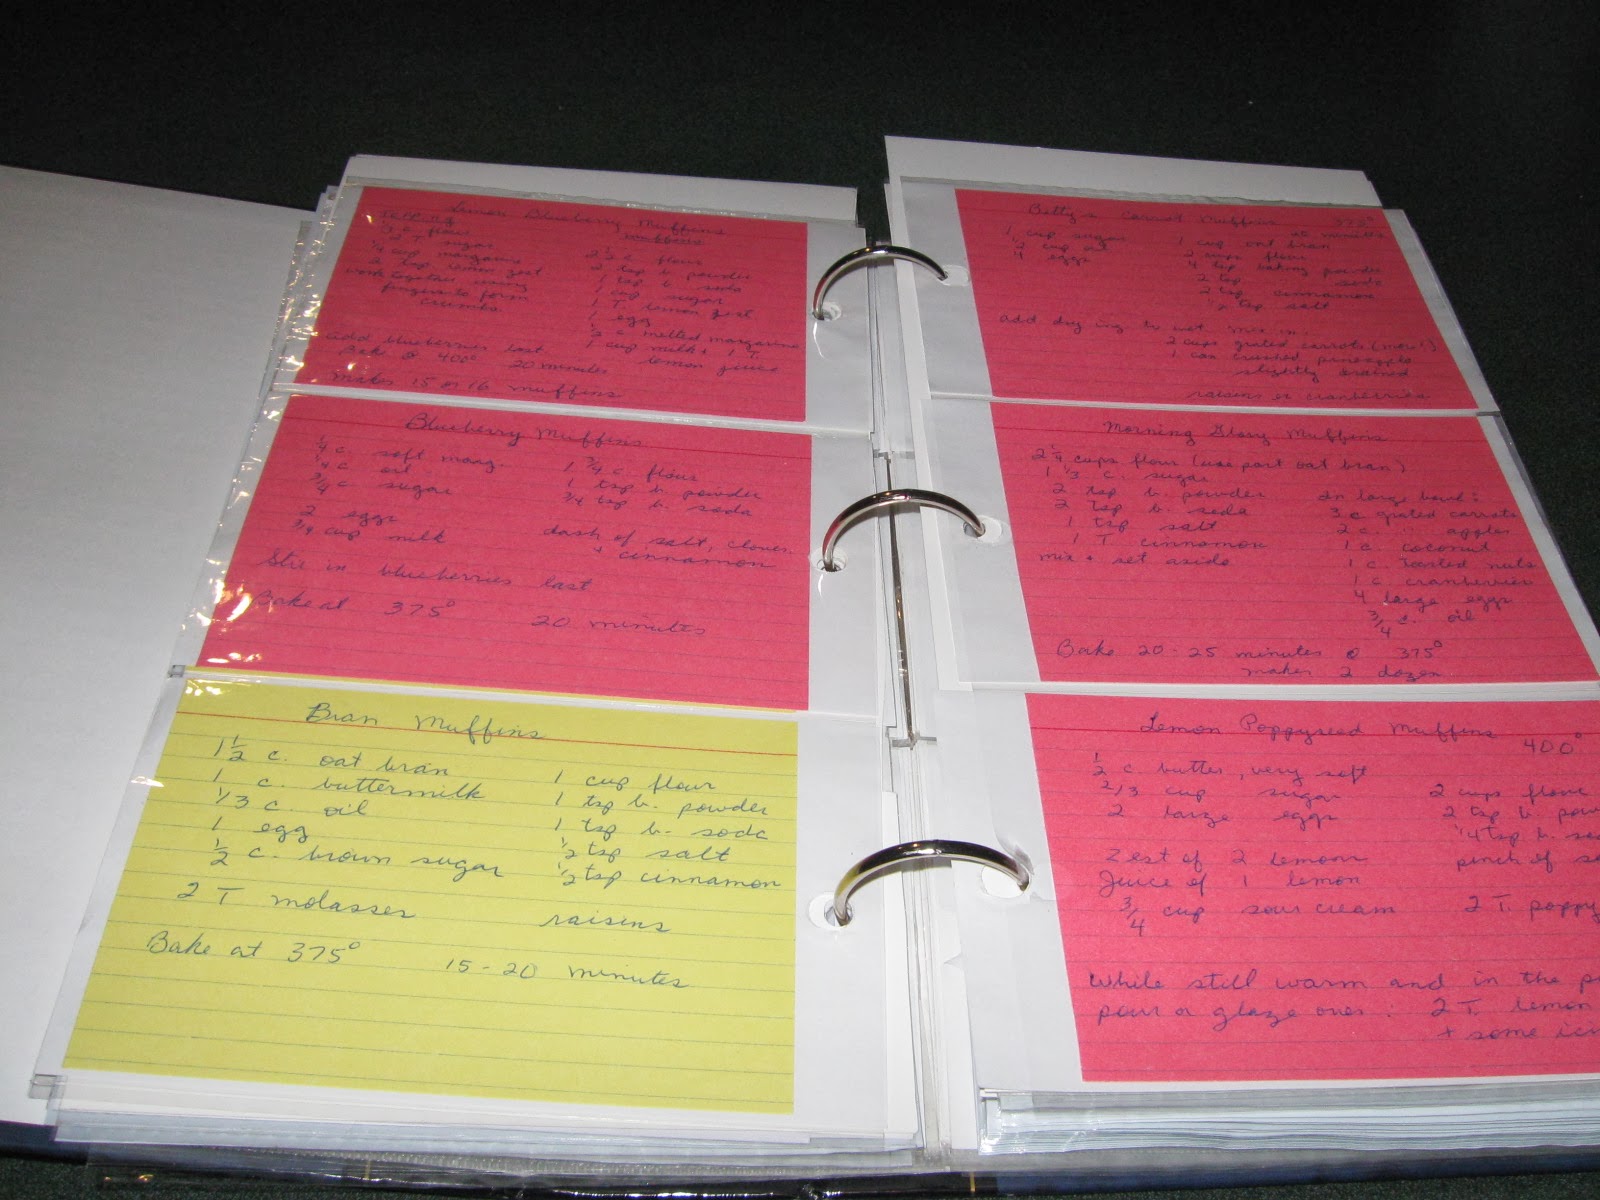 Lemon Blueberry Muffins
Topping
1/3 c flour
2 T. sugar
1/4 cup margarine
2 tsp lemon zest
work together using
fingers to form
crumbs
muffins
2 1/2 c. flour
2 tsp b. powder
1 tsp b. soda
1 cup sugar
1 T. lemon zest
1 egg
1/2 c melted margarine
1 cup milk + 1 T.
lemon juice
add blueberries last
Bake @ 400° 20 minutes
makes 15 or 16 muffins
Blueberry Muffins
1/4 c. soft marg.
1/4 c oil
3/4 c sugar
2 eggs
3/4 cup milk
1 3/4 c. flour
1 tsp b. powder
3/4 tsp b. soda
dash of salt, cloves
+ cinnamon
Stir in blueberries last
Bake at 375° 20 minutes
Bran Muffins
1 1/2 c. oat bran
1 c. buttermilk
1/3 c. oil
1 egg
1/2 c. brown sugar
2 T molasses
1 cup flour
1 tsp b. powder
1 tsp b. soda
1/2 tsp salt
1/2 tsp cinnamon
raisins
Bake at 375° 15-20 minutes
Betty's Carrot Muffins 375°
minutes
1 cup sugar
1/2 cup oil
4 eggs
1 cup oat bran
2 cups flour
4 tsp baking powder
2 tsp soda
2 tsp cinnamon
1/2 tsp salt
add dry ing to wet mix in
2 cups grated carrots (more!)
1 can crushed pineapple
slightly drained
raisins or cranberries
Morning Glory Muffins
2 1/4 cups flour (use part oat bran)
1 1/3 c. sugar
2 tsp b. powder
2 tsp b. soda
1 tsp salt
1 T cinnamon
mix + set aside
In large bowl:
3 c grated carrots
2 c. " apples
1 c. coconut
1 c. toasted nuts
1 c. cranberries
4 large eggs
3/4 c. oil
Bake 20-25 minutes @ 375°
makes 2 dozen
Lemon Poppyseed Muffins
400°
1/2 c. butter, very soft
2/3 cup sugar
2 large eggs
Zest of 2 lemons
Juice of 1 lemon
3/4 cup sour cream
2 cups flour
2 tsp b. pow
1/4 tsp b. so
pinch of s
2 T. poppy
While still warm and in the p
pour or glaze ones: 2 T. lemon
+ some ic